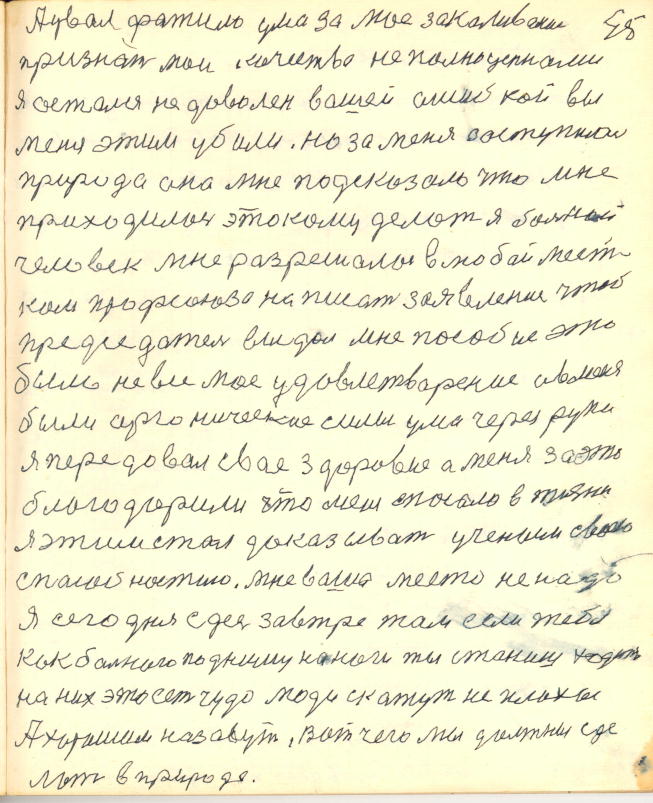 А у вас фатило ума за мое закаливание 55
признат мои качества неполноценнами
Я остался не доволен вашей ошибкой вы
меня этим убили. но за меня заступилась
природа она мне подсказало что мне
приходилося это кому делат я болной
человек мне разрешалося в любой мест-
ком профсоюза написат заявление чтоб
председателя выдал мне пособие это
было не вы мое удовлетварение а в меня
были органические сили ума через руки
я передовал свае здоровие а меня за это
благодорили что меня спосало в жизни
Я этим стал доказыват ученым свою
способностию. мне ваша место не надо
Я сегодня сдея завтре там если тебя
как болного подниму на ноги ты станиш ходит
на них это сет чудо люди скажут не плохы
А хорошим назавут, вот чего мы должны сде
лат в природе.